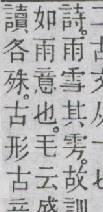 詩。雨雪其雱。故訓
如雨意也。毛云盛
讀各殊。古形古